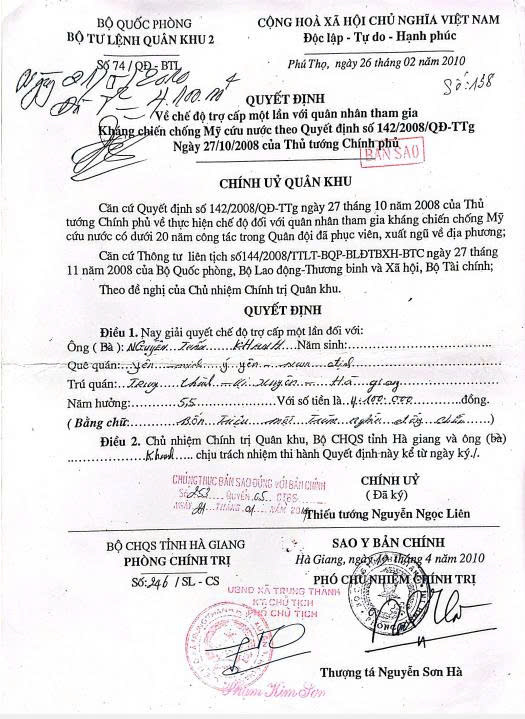 BỘ QUỐC PHÒNG
BỘ TƯ LỆNH QUÂN KHU 2
Số 74/QĐ - BTL
CỘNG HOÀ XÃ HỘI CHỦ NGHĨA VIỆT NAM
Độc lập - Tự do - Hạnh phúc
Phú Thọ, ngày 26 tháng 02 năm 2010
4.100.
Số: 138
QUYẾT ĐỊNH
Về chế độ trợ cấp một lần với quân nhân tham gia
Kháng chiến chống Mỹ cứu nước theo Quyết định số 142/2008/QĐ-TTg
Ngày 27/10/2008 của Thủ tướng Chính phủ
BẢN SAO
CHÍNH UỶ QUÂN KHU
Căn cứ Quyết định số 142/2008/QĐ-TTg ngày 27 tháng 10 năm 2008 của Thủ
tướng Chính phủ về thực hiện chế độ đối với quân nhân tham gia kháng chiến chống Mỹ
cứu nước có dưới 20 năm công tác trong Quân đội đã phục viên, xuất ngũ về địa phương;
Căn cứ Thông tư liên tịch số144/2008/TTLT-BQP-BLĐTBXH-BTC ngày 27 tháng
11 năm 2008 của Bộ Quốc phòng, Bộ Lao động-Thương binh và Xã hội, Bộ Tài chính;
Theo đề nghị của Chủ nhiệm Chính trị Quân khu.
QUYẾT ĐỊNH
Điều 1. Nay giải quyết chế độ trợ cấp một lần đối với:
Ông ( Bà ): Nguyễn Tuấn Khanh Năm sinh:
Quê quán: yên ý yên nam định
Trú quán: Trung thành Vị Xuyên Hà giang
Năm hưởng: 55 Với số tiền là 4.100.000 đồng.
( Bằng chữ: Bốn triệu một trăm nghìn đồng chẵn )
Điều 2. Chủ nhiệm Chính trị Quân khu, Bộ CHQS tỉnh Hà giang và ông (bà)
Khanh chịu trách nhiệm thi hành Quyết định này kể từ ngày ký./.
CHỨNG THỰC BẢN SAO ĐÚNG VỚI BẢN CHÍNH
SỐ 253 QUYỂN 05 CTBS
NGÀY THÁNG 01 NĂM
CHÍNH UỶ
(Đã ký)
Thiếu tướng Nguyễn Ngọc Liên
BỘ CHQS TỈNH HÀ GIANG
PHÒNG CHÍNH TRỊ
Số: 246 / SL - CS
SAO Y BẢN CHÍNH
Hà Giang, ngày 19 tháng 4 năm 2010
PHÓ CHỦ NHIỆM CHÍNH TRỊ
UBND XÃ TRUNG THÀNH
KT. CHỦ TỊCH
PHÓ CHỦ TỊCH
Phạm Kim Sơn
Thượng tá Nguyễn Sơn Hà